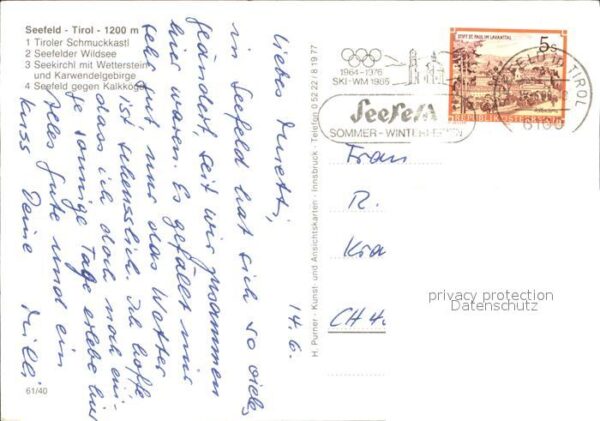 Seefeld - Tirol - 1200 m
1 Tiroler Schmuckkastl
2 Seefelder Wildsee
3 Seekirchl mit Wetterstein
und Karwendelgebirge
4 Seefeld gegen Kalkkögel
14.6.
Liebes Anetti,
in Seefeld hat sich so vieles
geändert, seit wir zusammen
hier waren. Es gefällt mir
sehr gut nur das Wetter
ist scheusslich. Ich hoffe
dass ich doch noch eini-
ge sonnige Tage erlebe hier
Alles Gute und ein
Kuss Deine
Milli
61/40
H. Purner - Kunst- und Ansichtskarten - Innsbruck - Telefon 0 52 22 / 8 19 77
1964-1976
SKI-WM 1985
Seefeld
SOMMER - WINTER
STIFT ST. PAUL IM LAVANTTAL
5 S
REPUBLIK ÖSTERREICH
SEEFELD IN TIROL
6100
Frau
R.
Kra
CH 4.
privacy protection
Datenschutz